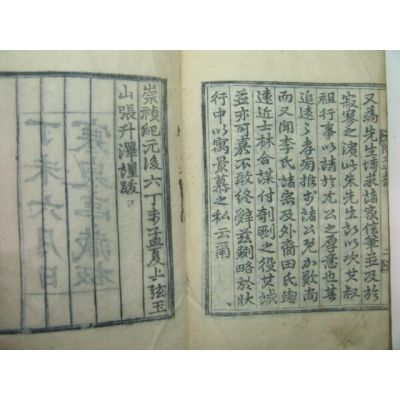 又爲先生博求諸家信筆並及於
寂寥之渚此朱先生所以次其叔
祖行事以請於尤公之厚意也其
追遠之孝推於諸公尤如歎尚
而又聞李氏諸宗及外裔田氏
遠近士林合謀付剞劂之役其誠
益亦可嘉不敢終辭玆略於狀
行中以寓景慕之私云爾
崇禎紀元後六丁未孟夏上弦玉
山張升澤謹跋
齋藏板
丁未六月日